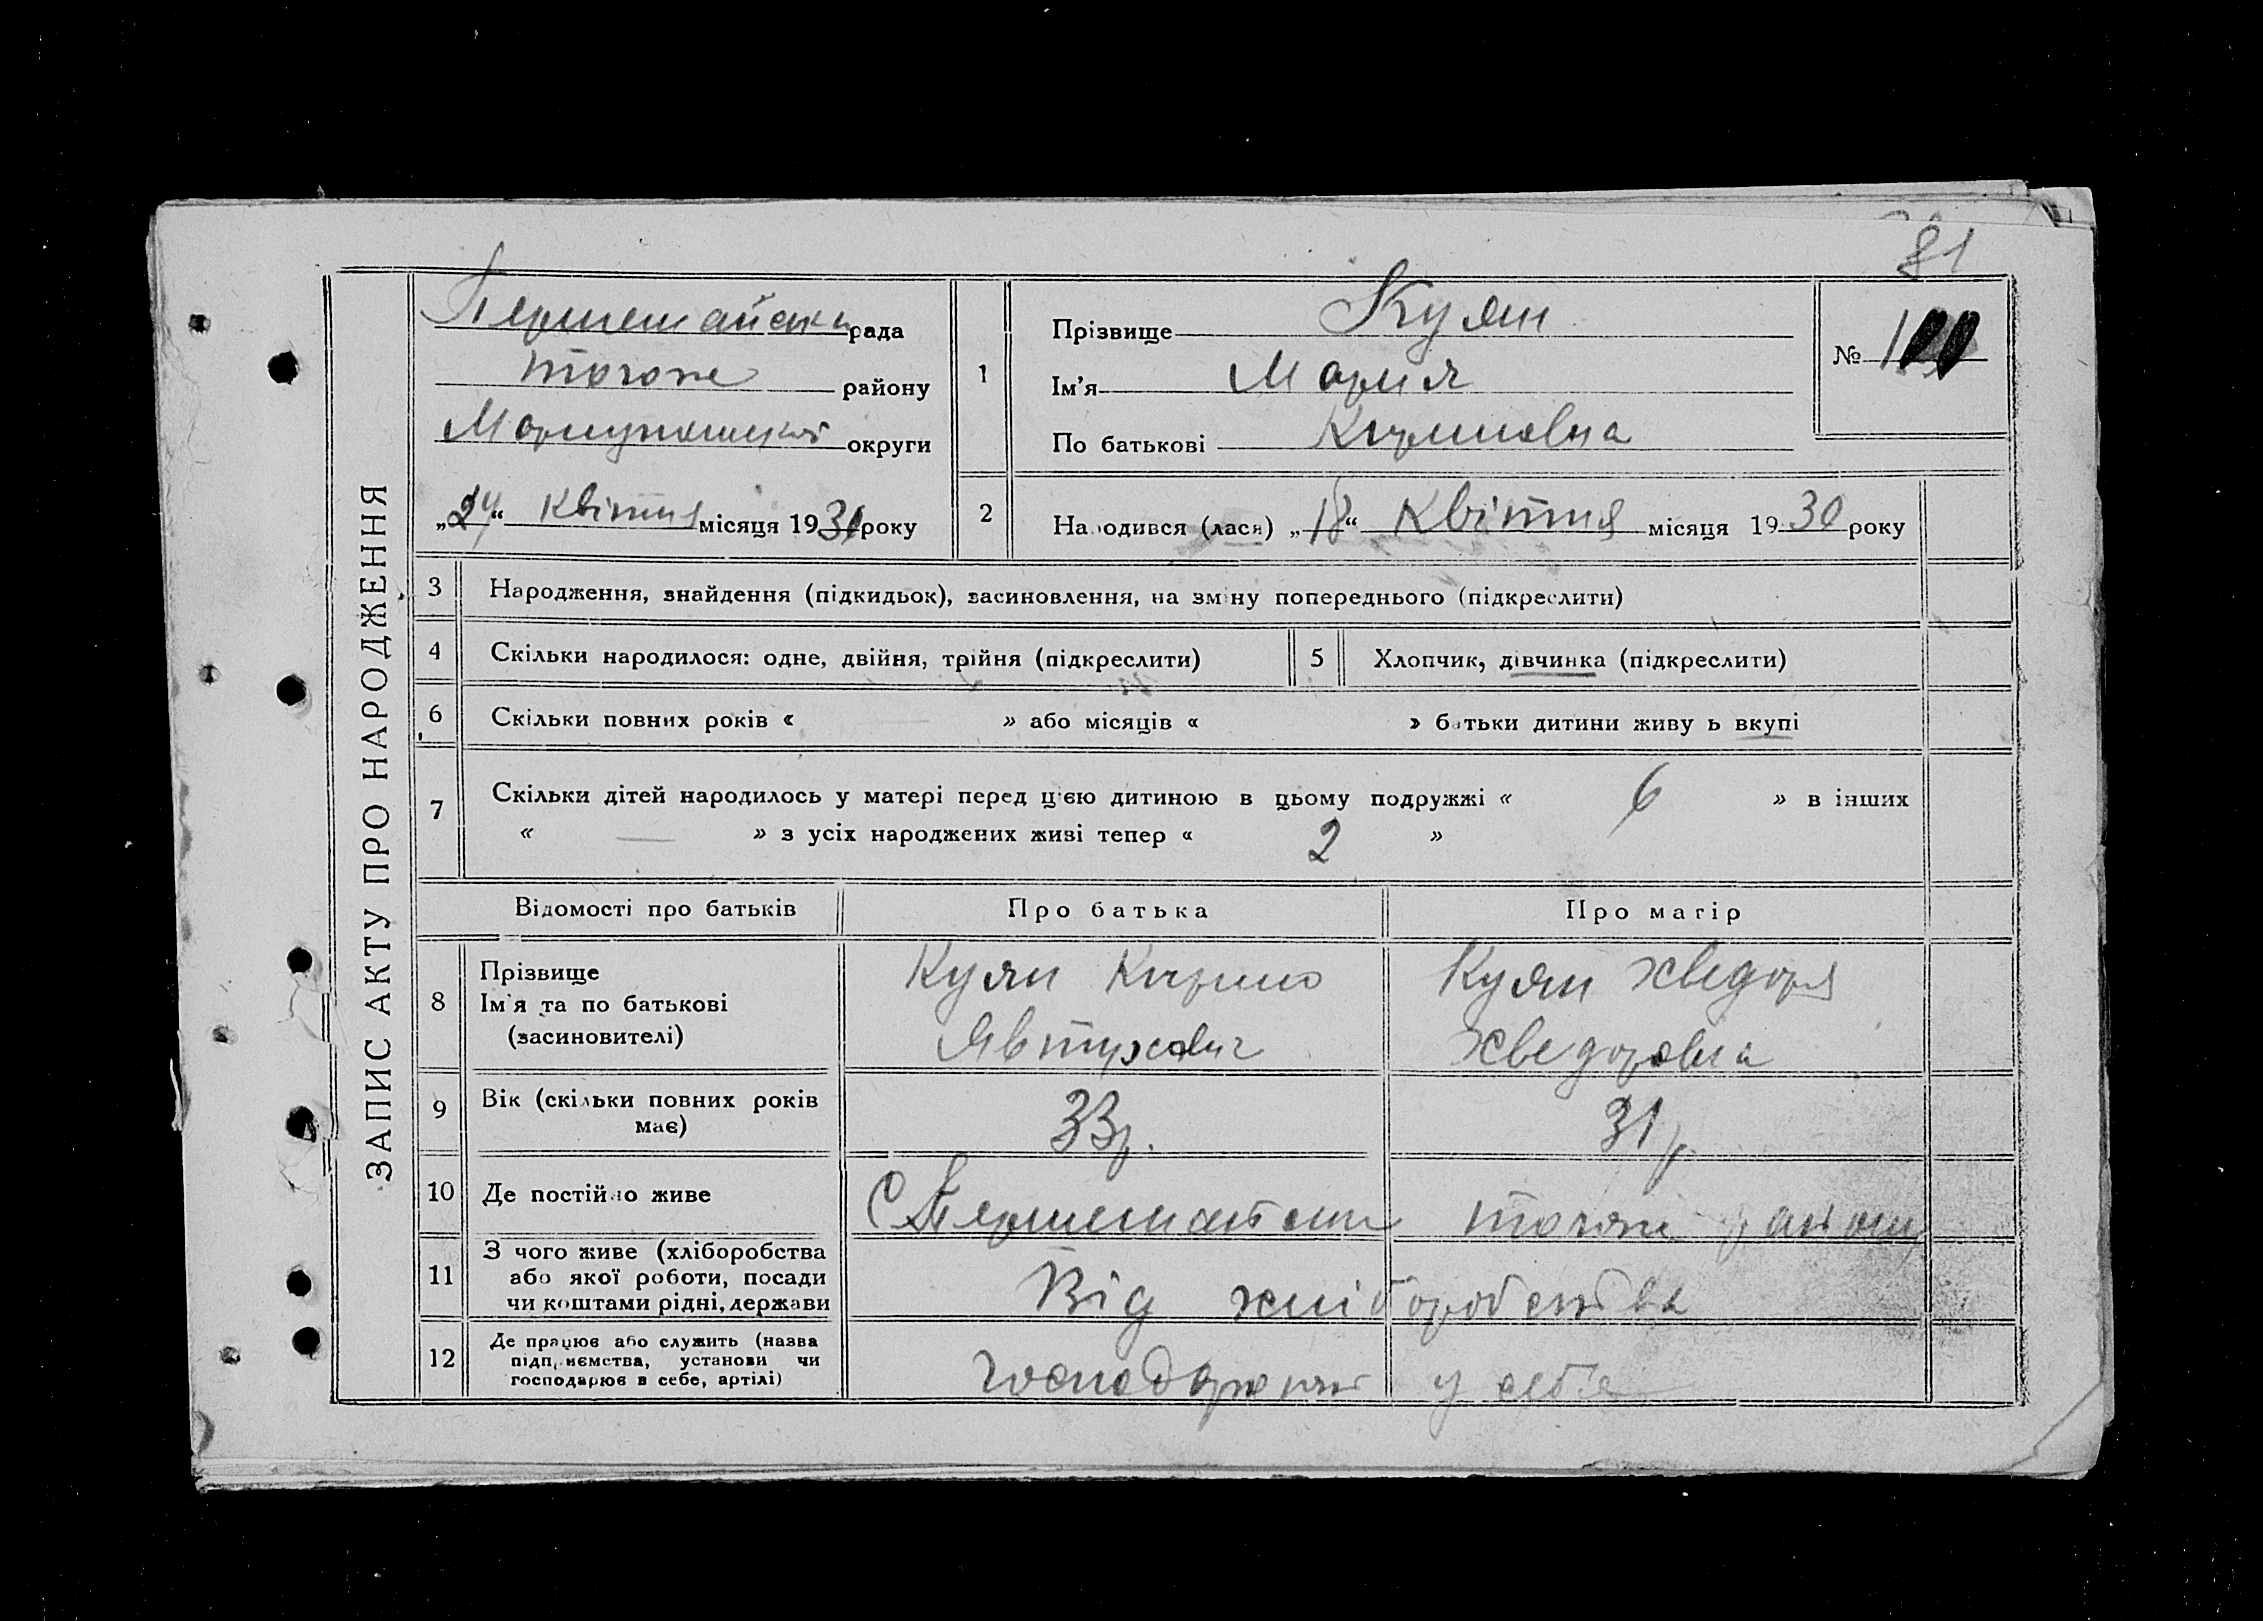 81
ЗАПИС АКТУ ПРО НАРОДЖЕННЯ
Першемайська рада
тогоже району
Маріупольської округи
„24“ Квітня місяця 1930 року
1
Прізвище Куян
Ім’я Мария
По батькові Кириловна
№ 1
2
Народився (лася) „18“ Квітня місяця 1930 року
3 Народження, знайдення (підкидьок), засиновлення, на зміну попереднього (підкреслити)
4 Скільки народилося: одне, двійня, трійня (підкреслити)
5 Хлопчик, дівчинка (підкреслити)
6 Скільки повних років « — » або місяців « » батьки дитини живуть вкупі
7 Скільки дітей народилось у матері перед цією дитиною в цьому подружжі « 6 » в інших
« — » з усіх народжених живі тепер « 2 »
Відомості про батьків
Про батька
Про матір
8 Прізвище
Ім’я та по батькові
(засиновителі)
Куян Кирило
Явтухович
Куян Хведора
Хведоровна
9 Вік (скільки повних років
має)
33р.
31р.
10 Де постійно живе
С Першемайське тогоже району
11 З чого живе (хліборобства
або якої роботи, посади
чи коштами рідні, держави
Від хліборобства
12 Де працює або служить (назва
підприємства, установи чи
господарює в себе, артілі)
господарюют у себе